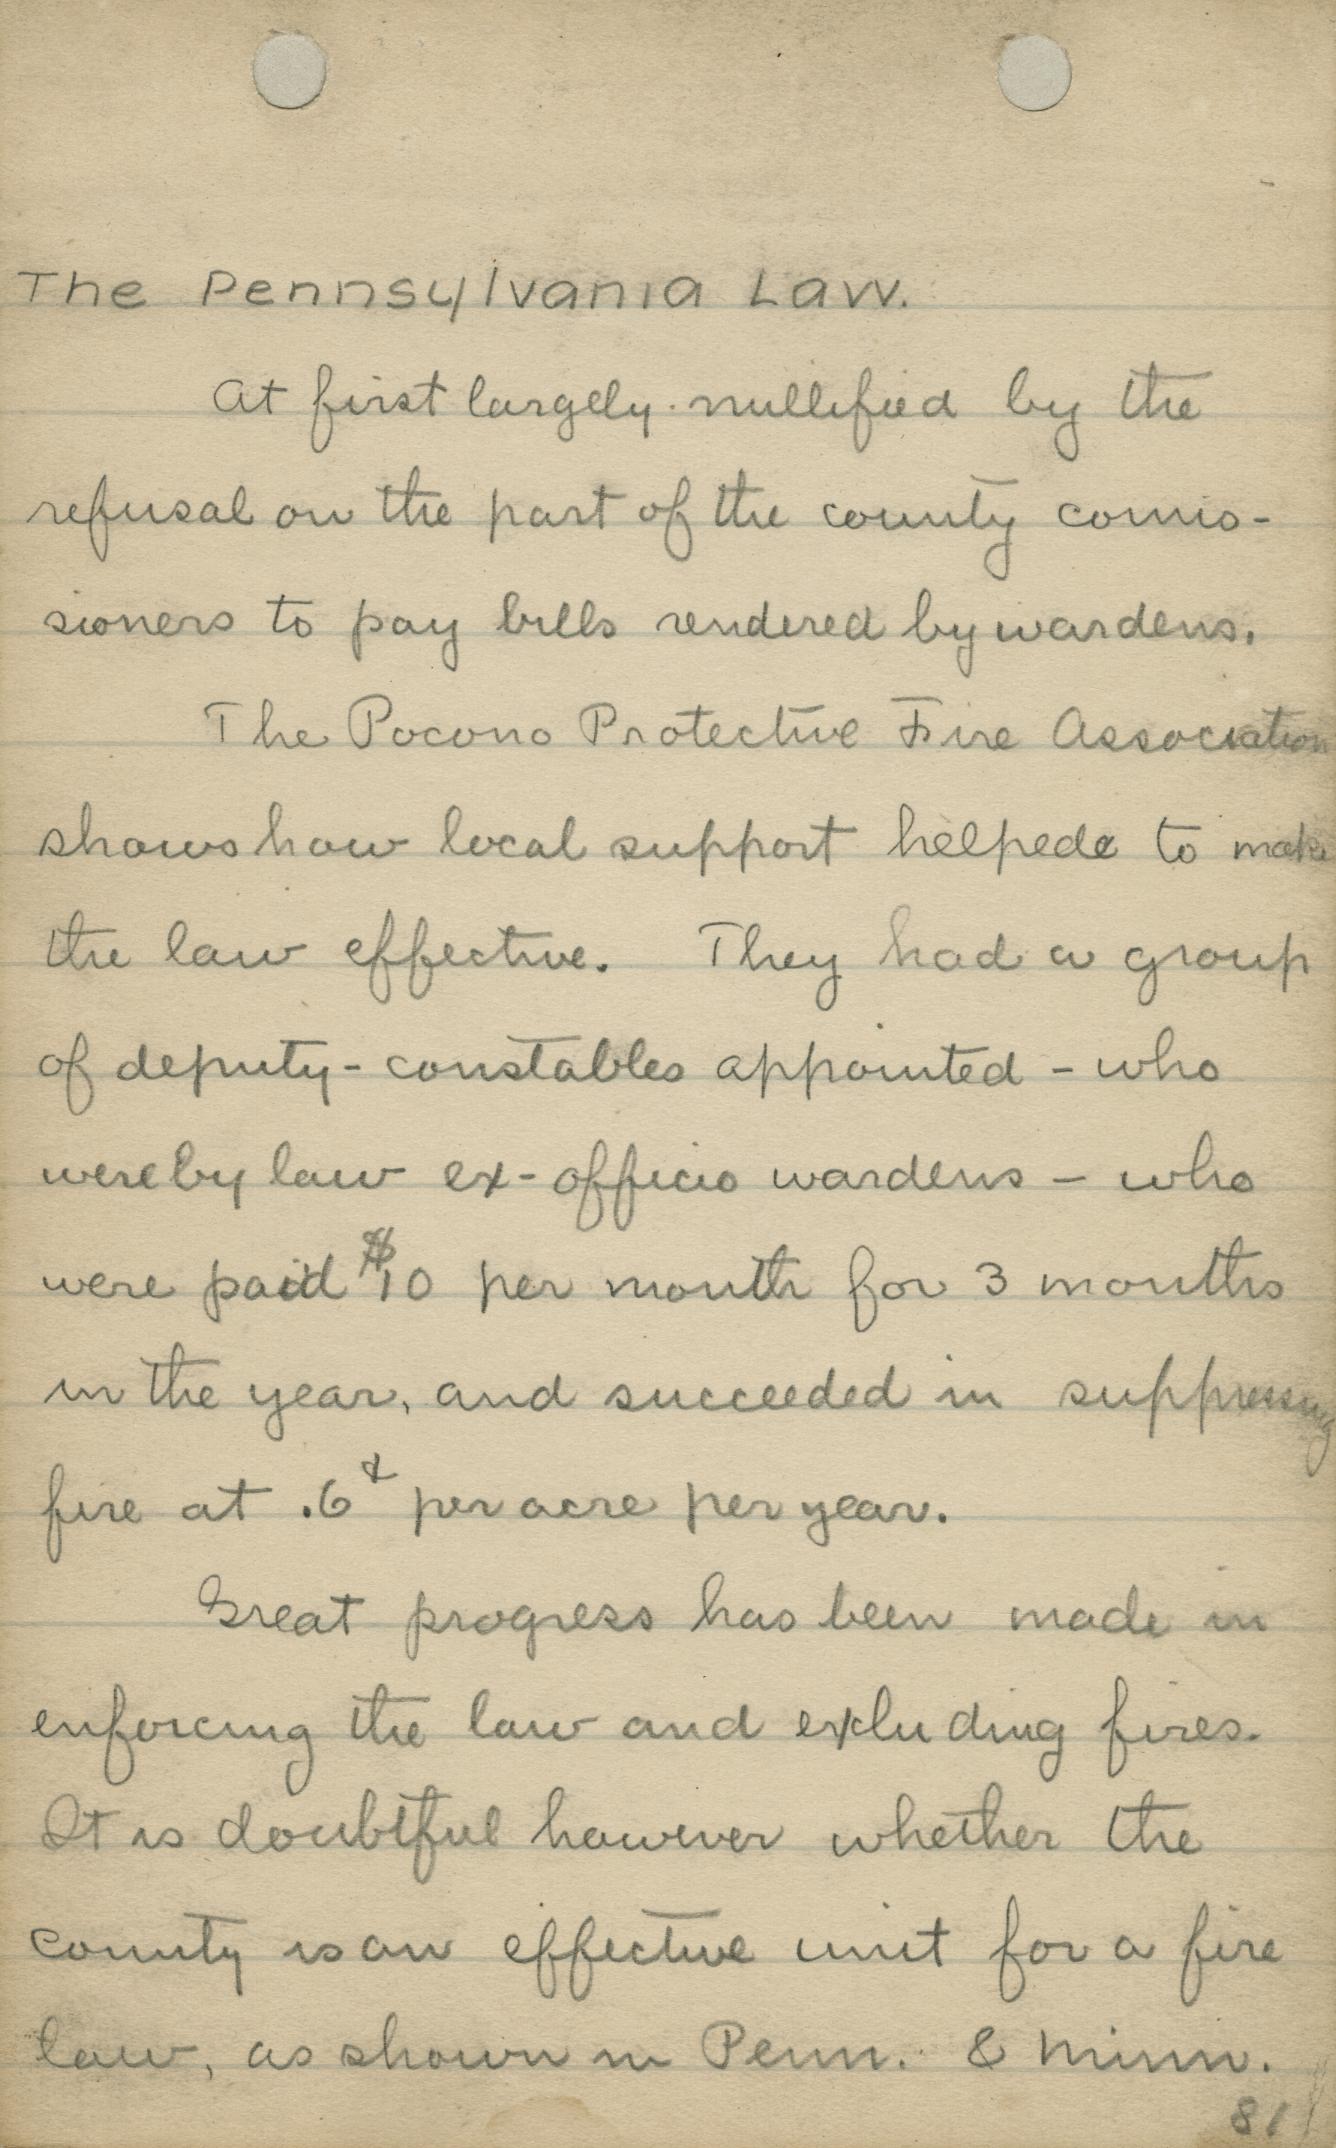 The Pennsylvania Law.
At first largely nullified by the
refusal on the part of the county comis-
sioners to pay bills rendered by wardens.
The Pocono Protective Fire Association
shows how local support helpede to make
the law effective. They had a group
of deputy-constables appointed - who
were by law ex-officio wardens - who
were paid $10 per month for 3 months
in the year, and succeeded in suppressing
fire at .6¢ per acre per year.
Great progress has been made in
enforcing the law and exluding fires.
It is doubtful however whether the
county is an effective unit for a fire
law, as shown in Penn. & Minn.
81